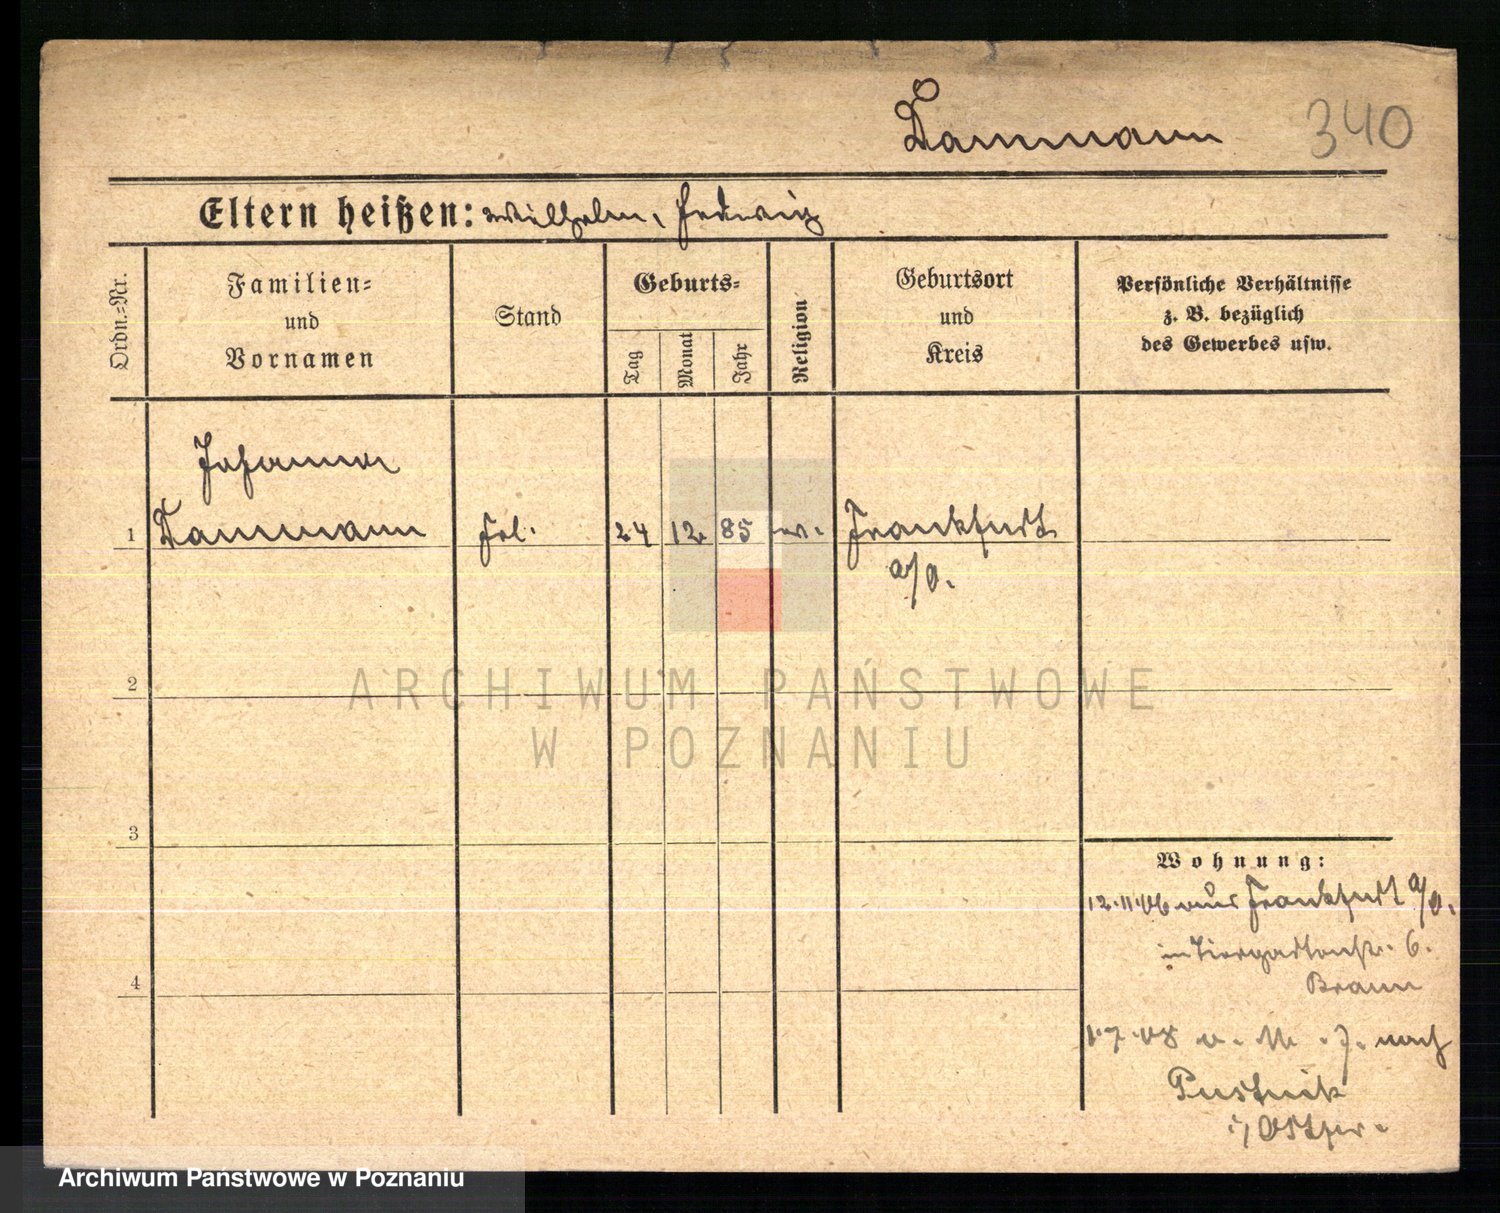 Dammann 340
Eltern heißen: Wilhelm, Hedwig
Ordn.-Nr.
Familien-
und
Vornamen
Stand
Geburts-
Tag
Monat
Jahr
Religion
Geburtsort
und
Kreis
Persönliche Verhältnisse
z. B. bezüglich
des Gewerbes usw.
Johanna
1 Dammann Frl. 24 12 85 ev. Frankfurt
a/O.
2
ARCHIWUM PAŃSTWOWE
W POZNANIU
3
Wohnung:
12.11.06 aus Frankfurt a/O.
in Tiergartenstr. 6.
Braun
4
1.7.08 nach
i/Ostpr.
Archiwum Państwowe w Poznaniu